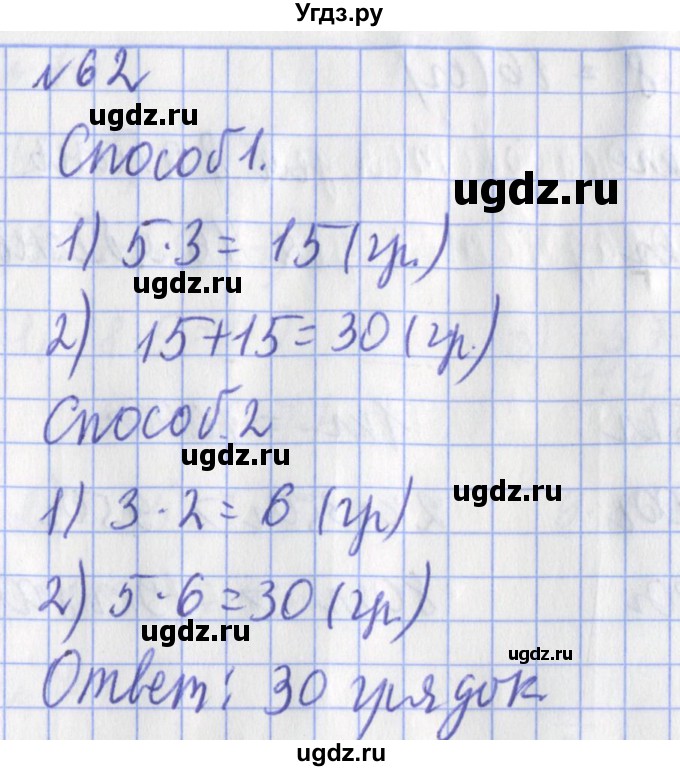 Угдз.ру
№62
ugdz.ru
Способ 1.
ugdz.ru
1) 5·3 = 15 (гр.)
ugdz.ru
2) 15+15=30 (гр.)
Способ 2
ugdz.ru
1) 3·2=6 (гр)
ugdz.ru
2) 5·6=30 (гр.)
ugdz.ru
Ответ: 30 грядок
ugdz.ru
ugdz.ru